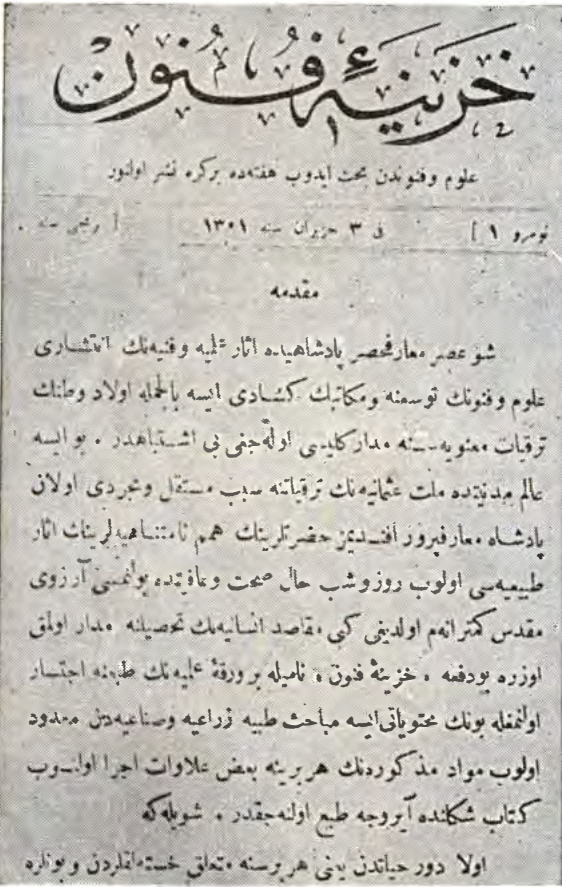 خزينهٔ فنون
علوم وفنوندن بحث ايدوب هفته‌ده بركره نشر اولنور
نومرو ١ ] فى ٣ حزيران سنه ١٣٠١ [ سنه
مقدمه
شو عصر معارفحصر پادشاهيده آثار علميه وفنيه‌نك انتشارى
علوم وفنونك توسعنه ومكاتبك كشادى ايسه بالجمله اولاد وطنك
ترقيات معنويه‌سنه مدار كليسى اوله‌جغى بى اشتباهدر . بو ايسه
عالم مدنيتده ملت عثمانيه‌نك ترقياتنه سبب مستقل ومجردى اولان
پادشاه معارفپرور افنديمز حضرتلرينك همم نامتناهيه‌لرينك اثار
طبيعيه‌سى اولوب روز وشب حال صحت وعافيتده بولنمسى آرزوى
مقدس كمترانه‌م اولديغى كبى مقاصد انسانيه‌نك تحصيلنه مدار اولمق
اوزره بودفعه « خزينهٔ فنون » ناميله بر ورقهٔ علميه‌نك طبعنه اجتسار
اولنمغله بونك محتوياتى ايسه مباحث طبيه زراعيه وصناعيه‌دن معدود
اولوب مواد مذكوره‌نك هربرينه بعض علاوات اجرا اولنوب
كتاب شكلنده آيروجه طبع اولنه‌جقدر . شويله‌كه
اولا دور حياتدن يعنى هر برسنه متعلق خسته‌لقلردن وبونلره